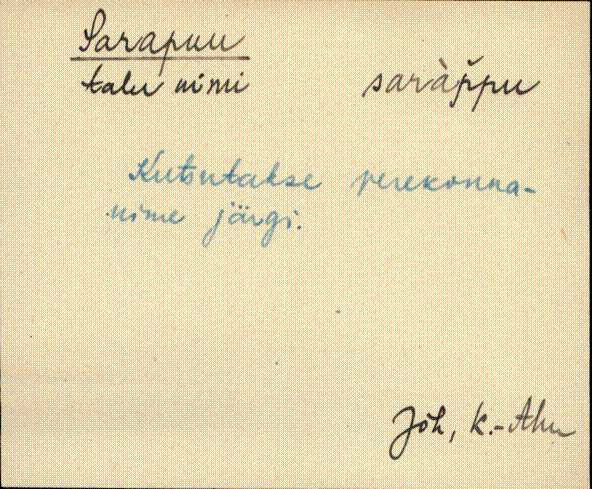 Sarapuu
talu nimi saràp̆pu
Kutsutakse perekonna-
nime järgi.
Jõh, K.-Ahu